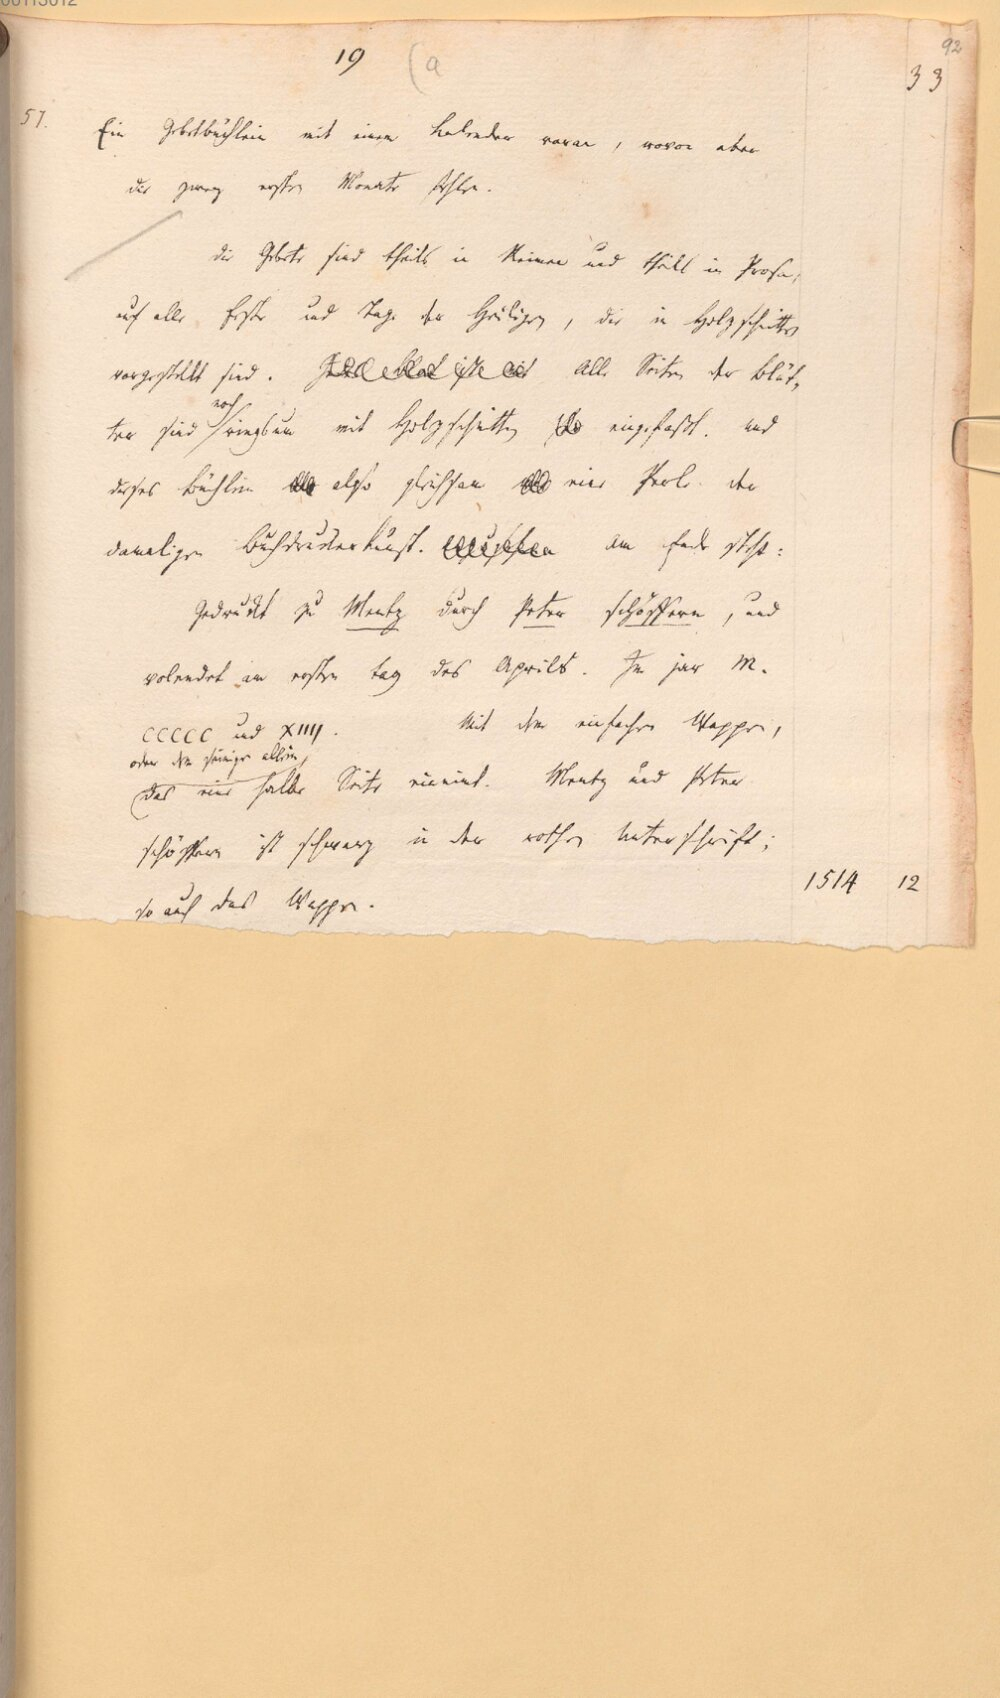 92
19 (a
33
57. Ein Gebetbüchlein mit einem Kalender voran, wovon aber
die zwey ersten Monate fehlen.
die Gebete sind theils in Reimen und theils in Prosa,
auf alle Feste und Tage der Heiligen, die in Holzschnitten
vorgestellt sind. Alle Seiten der Blät-
noch
ter sind ringsum mit Holzschnitten eingefasst, und
dieses Büchlein also gleichsam eine Perle der
damaligen Buchdruckerkunst. Am Ende steht:
Gedruckt zu Mentz durch Peter schöffern, und
volendet am ersten tag des Aprils. Im jar M.
CCCCC und XIIII. Mit dem einfachen Wappen,
oder dem seinigen allein,
das eine halbe Seite einnimt. Mentz und Peter
schöffern ist schwarz in der rothen Unterschrift;
so auch das Wappen.
1514 12